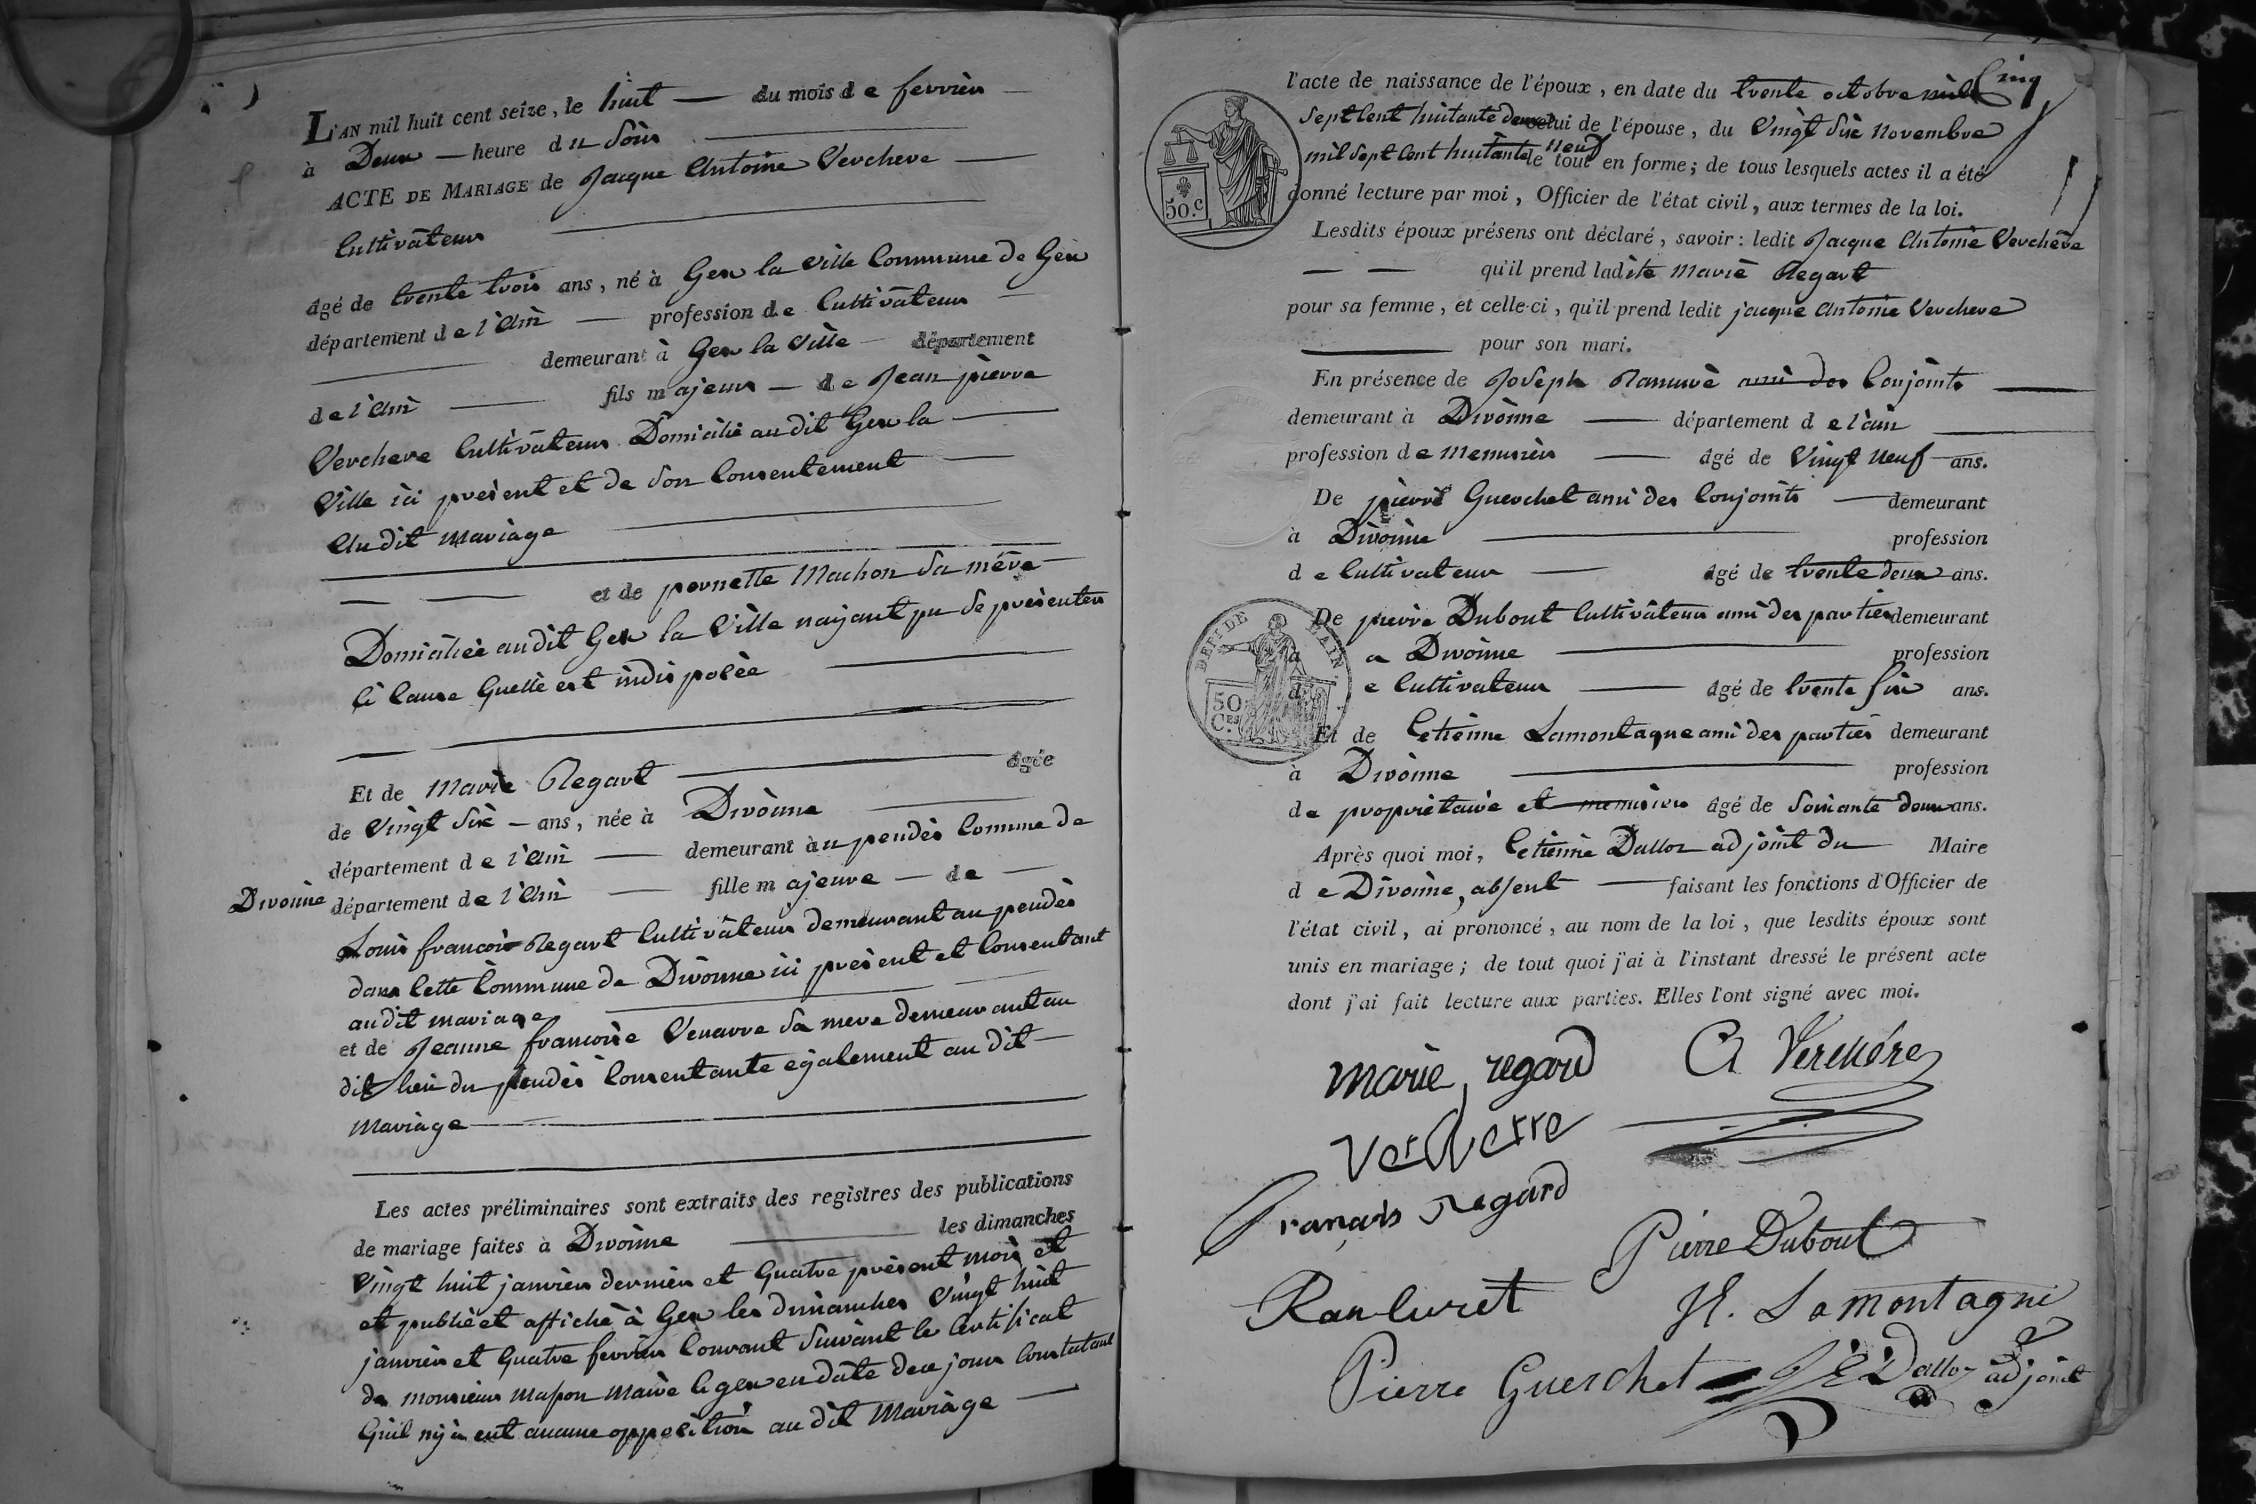 L'AN mil huit cent seize, le huit — du mois de fevrier —
à Deux — heure du Soir —
ACTE DE MARIAGE de Jacque Antoine Verchere —
Cultivateur —
âgé de trente trois ans, né à Gex la ville Commune de Gex
département de l'Ain — profession de Cultivateur —
— demeurant à Gex la Ville — département
de l'Ain — fils majeur — de Jean pierre
Verchere Cultivateur Domicilié au dit Gex la —
Ville ici present et de son Consentement —
Au dit mariage —
— — et de pernette Machon Sa mére —
Domiciliée au dit Gex la Ville nayant pu Se presenter
à Cause Quelle est indisposée —
Et de Marie Regart — âgée
de Vingt Six — ans, née à Divonne —
département de l'Ain — demeurant àu pendès Comme de
Divonne département de l'Ain — fille majeure — de —
Louis francois Regart Cultivateur demeurant au pendès
dans Cette Commune de Divonne ici present et Consentant
au dit mariage —
et de Jeanne francoise Venarre Sa mere demeurant au
dit lieu du pendès Consentante également au dit —
Mariage —
Les actes préliminaires sont extraits des registres des publications
de mariage faites à Divonne — les dimanches
Vingt huit janvier dernier et Quatre présent mois et
et publié et affiché à Gex les dimanches Vingt huit
janvier et Quatre fevrier Courant Suivant le Certificat
de monsieur maßon Maire à gex en date de ce jour Constatant
Quil ny à eut aucune opposition au dit Mariage —
l'acte de naissance de l'époux, en date du trente octobre mil Cinq
Sept Cent huitante deux celui de l'épouse, du Vingt Six Novembre
mil Sept Cent huitante neuf le tout en forme; de tous lesquels actes il a été
donné lecture par moi, Officier de l'état civil, aux termes de la loi.
50.c
Lesdits époux présens ont déclaré, savoir: ledit Jacque Antoine Verchère
— — qu'il prend ladite Marie Regart
pour sa femme, et celle-ci, qu'il prend ledit jacque Antoine Verchere
— pour son mari.
En présence de Joseph ami des Conjoints —
demeurant à Divonne — département de l'ain —
profession de Menusier — âgé de Vingt Neuf ans.
De pierre Guerchet ami des Conjoints — demeurant
à Divonne — profession
de Cultivateur — âgé de trente deux ans.
De pierre Dubout Cultivateur ami des parties demeurant
à a Divonne — profession
de Cultivateur — âgé de trente six ans.
DEP.T DE L'AIN
50 C.ES
Et de Cetienne Lamontagne ami des parties demeurant
à Divonne — profession
de propriétaire et menusier âgé de Soixante deux ans.
Après quoi moi, Cetienne Dalloz adjoint du — Maire
de Divonne, absent — faisant les fonctions d'Officier de
l'état civil, ai prononcé, au nom de la loi, que lesdits époux sont
unis en mariage; de tout quoi j'ai à l'instant dressé le présent acte
dont j'ai fait lecture aux parties. Elles l'ont signé avec moi.
marie regard A Verchére
Vercherre
François regard
Pierre Dubout
Ranluret Lamontagne
Pierre Guerchet Dalloz adjoint